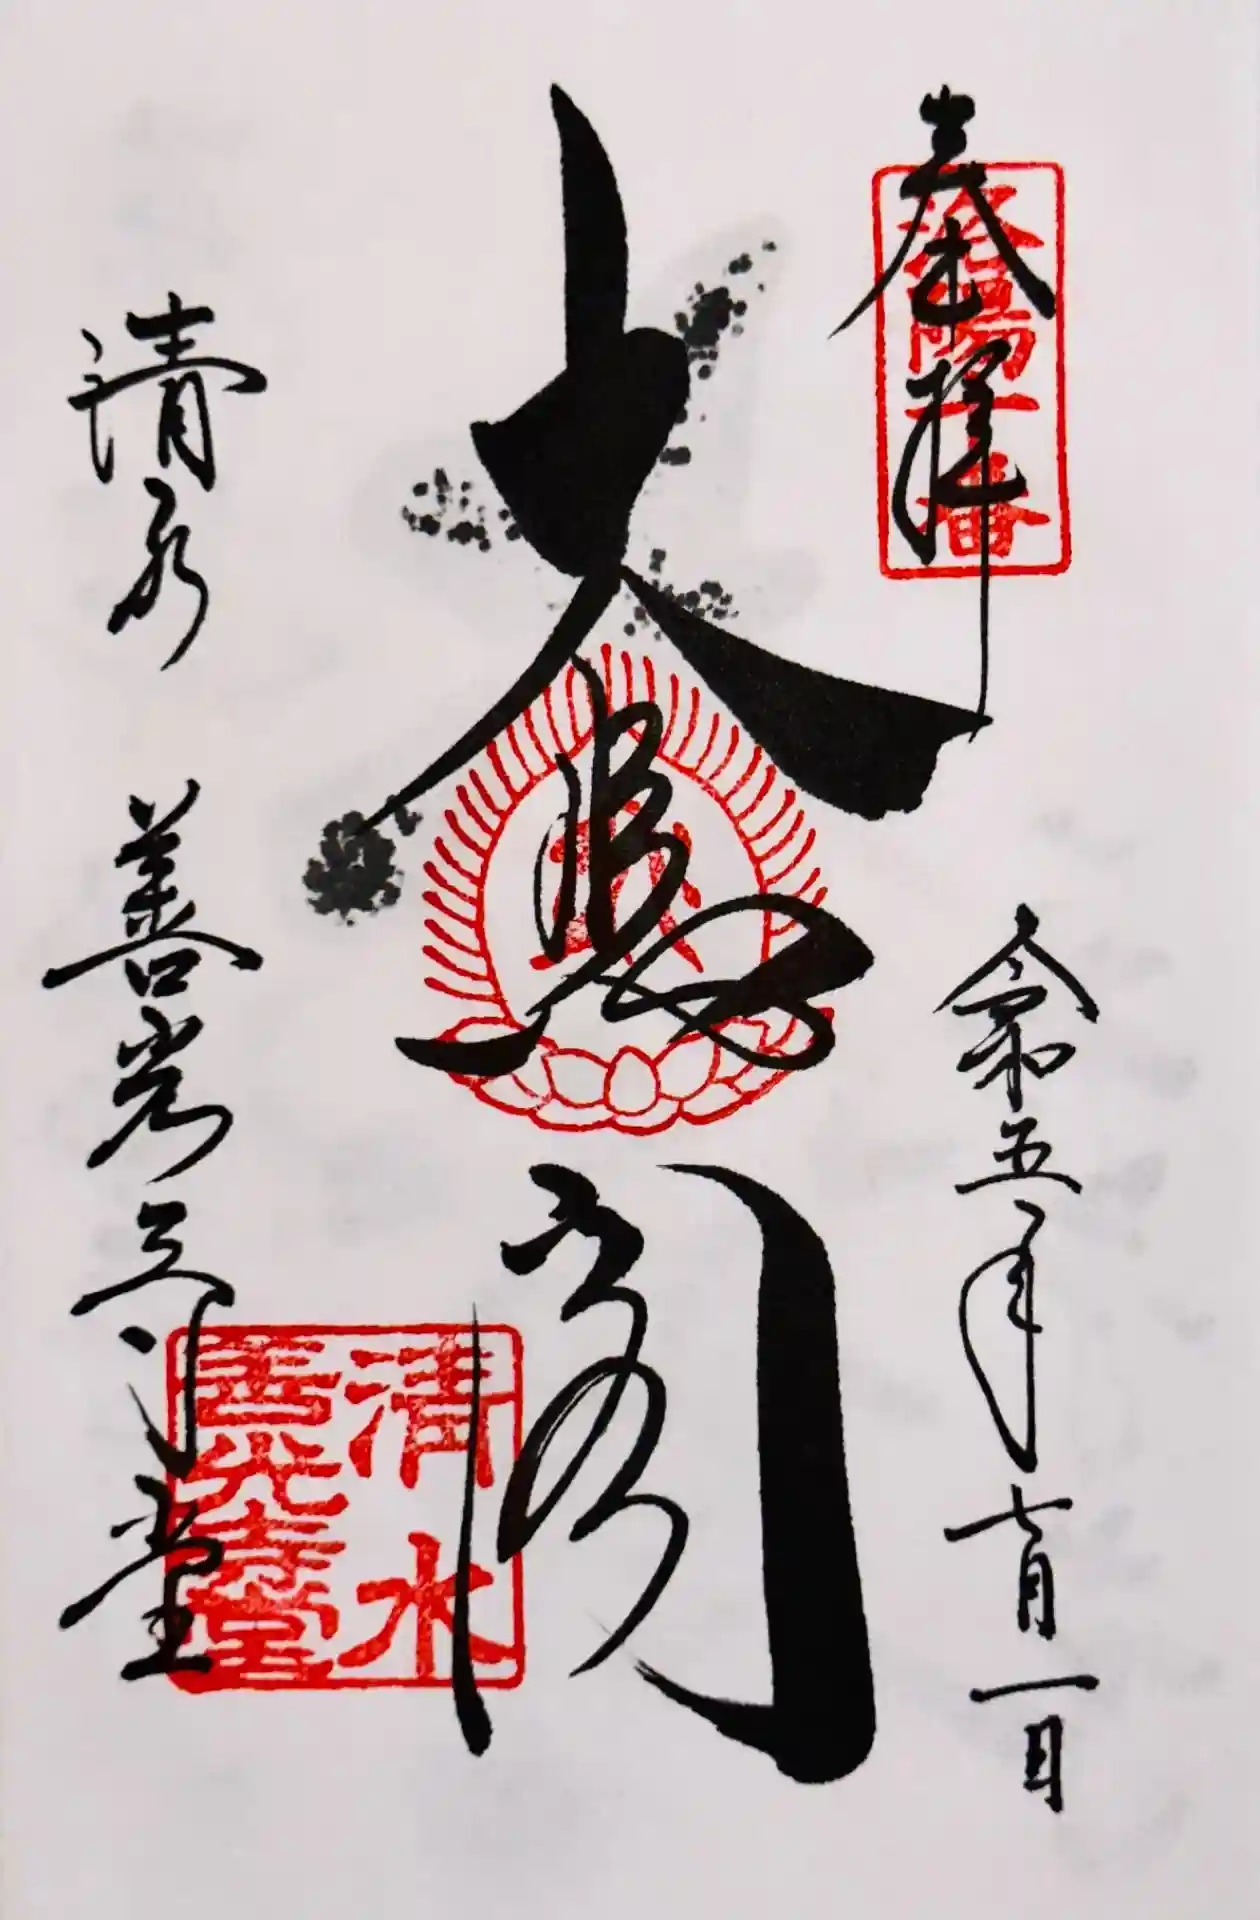 奉拝
洛陽十番
令和五年七月一日
大悲閣
清水 善光寺堂
清水
善光寺堂